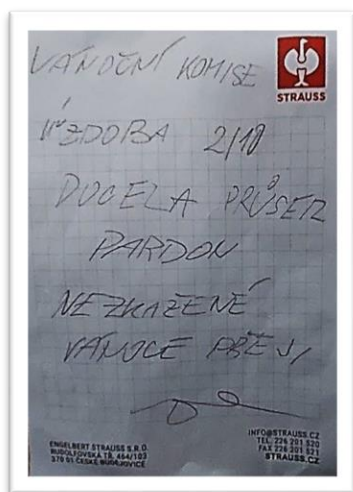 VÁNOČNÍ KOMISE
STRAUSS
VÝZDOBA 2/10
DOCELA PRŮSER
PARDON
NEZKAŽENÉ
VÁNOCE PŘEJI
ENGELBERT STRAUSS S.R.O.
RUDOLFOVSKÁ TŘ. 464/103
370 01 ČESKÉ BUDĚJOVICE
INFO@STRAUSS.CZ
TEL. 226 201 520
FAX 226 201 521
STRAUSS.CZ